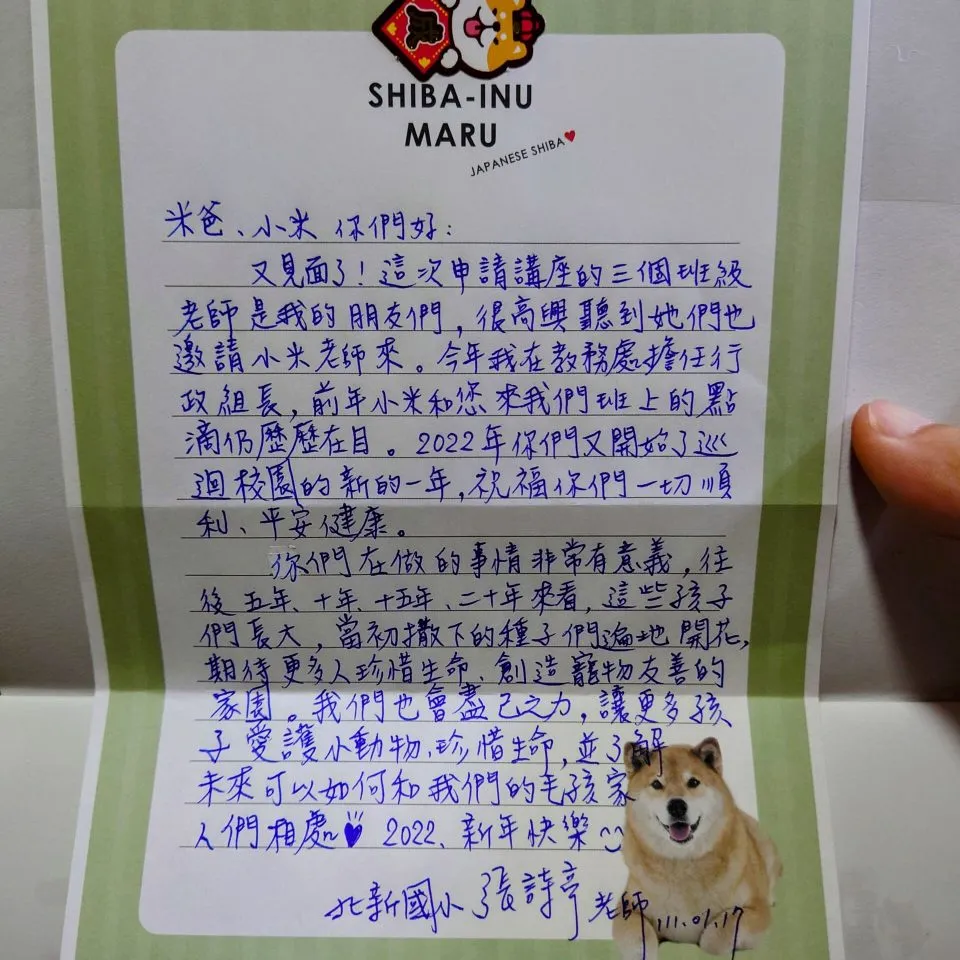 戌
SHIBA-INU
MARU
JAPANESE SHIBA
米爸、小米 你們好：
又見面了！這次申請講座的三個班級
老師是我的朋友們，很高興聽到她們也
邀請小米老師來。今年我在教務處擔任行
政組長，前年小米和您來我們班上的點
滴仍歷歷在目。2022年你們又開始了巡
迴校園的新的一年，祝福你們一切順
利、平安健康。
你們在做的事情非常有意義，往
後五年、十年、十五年、二十年來看，這些孩子
們長大，當初撒下的種子們遍地開花，
期待更多人珍惜生命、創造寵物友善的
家園。我們也會盡己之力，讓更多孩
子愛護小動物、珍惜生命，並了解
未來可以如何和我們的毛孩家
人們相處 2022、新年快樂
北新國小 張詩亭老師 111.01.17